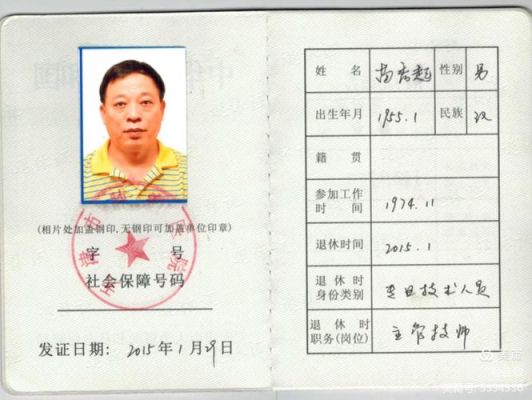 (相片处加盖钢印,无钢印可加盖单位印章)
字 号
社会保障号码
发证日期: 2015年1月29日
姓 名
性别 男
出生年月 1955.1 民族 汉
籍 贯
参加工作
时 间
1974.11
退休时间 2015.1
退 休 时
身份类别
专业技术人员
退 休 时
职务(岗位)
主管技师